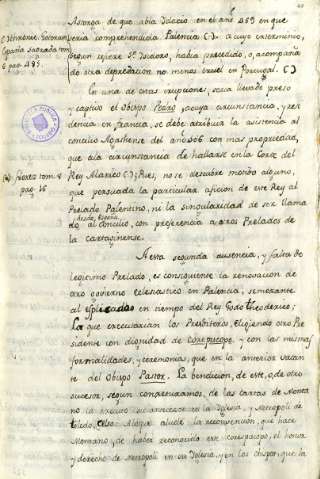 Astorga, de que abia Idacio en el año 459 en que
seria comprehendida Palencia (.) a cuyo exterminio,
segun refiere Sn. Isidoro, habia precedido, o, acompaña
do otra depredacion no menos cruel en Portugal. (.)
En una de estas erupciones, seria llevado preso
y captivo el obispo Pedro, a cuya circunstancia, y resi
dencia en francia, se debe atribuir la asistencia al
concilio Agathense del año 506 con mas propiedad,
que a la circunstancia de hallarse en la Corte del
(a) florez tom. 8
pag. 16
Rey Alarico (.); Pues, no se descubre motivo alguno,
que persuada la particular aficion de este Rey al
Prelado Palentino, ni la singularidad de ser llama
desde España,
do al concilio, con preferencia a otros Prelados de
la cartaginense.
A esta segunda ausencia, y falta de
legitimo Prelado, es consiguiente la renovacion de
otro govierno eclesiastico en Palencia, semejante
al explicado en tiempo del Rey Teodotheoderico;
La que executarian los Presbiteros, eligiendo otro Pre
sidente con dignidad de corepiscopo, y con las mismas
formalidades, y ceremonias, que en la anterior vacan
te del obispo Pastor. La bendicion, de este, o, de otro
sucesor, segun comprendemos, de las cartas de Monta
no
toledo,
Montano, de haber reconocido este corepiscopo, el honor
y derecho de metropoli en su Iglesia, y en los disper, que la